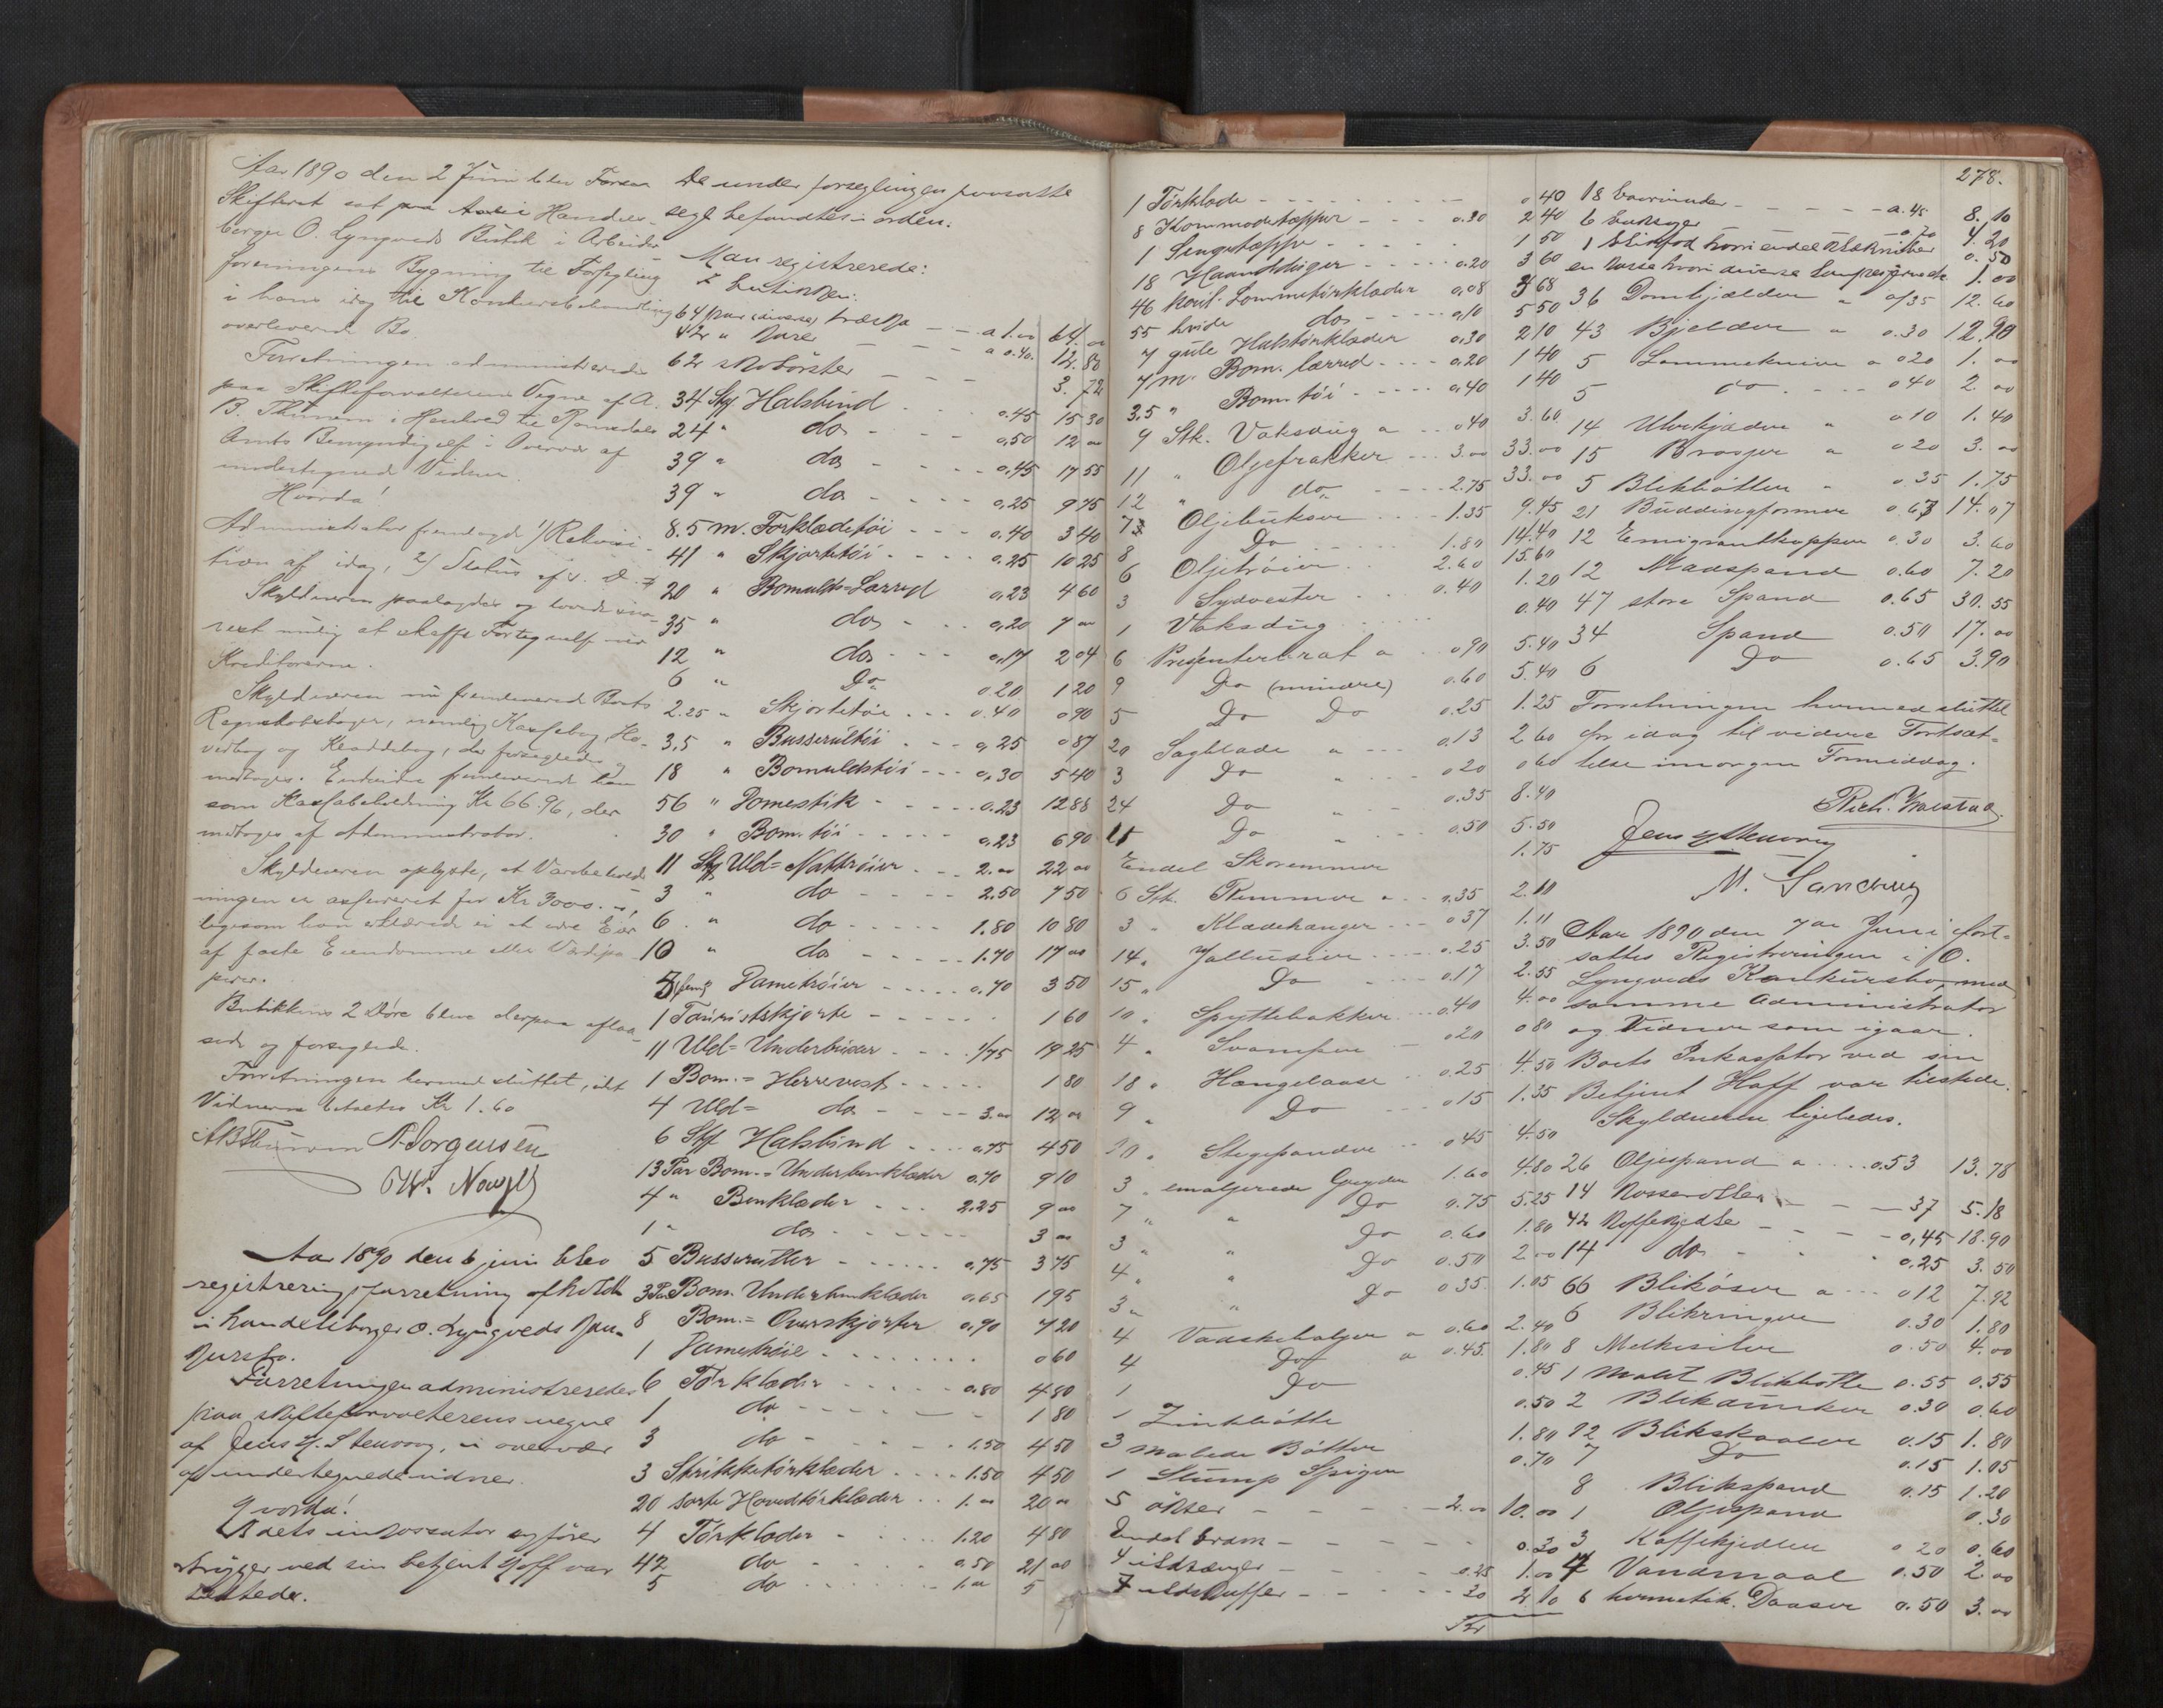 Aar 1890 den 2 Juni blev Forsen
Skifteret sat paa Handels-
borger O. Lyngveds Butik i Arbeider
foreningens Bygning til Forsegling
i hans idag til Konkursbehandling
overleverede Bo.
Forretningen administreredes
paa Skifteforvalterens Vegne af A.
B. Thinem i Henhold til Romsdals
Amts Bemyndigelse i Overvær af
undertegnede Vidner.
Hvorda!
Administrator fremlagde 1) Rekvisi-
tion af idag, 2) Status af s. D.
Skyldneren paalagdes og lovede sna-
rest mulig at skaffe Fortegnelse over
Kreditorerne.
Skyldneren nu fremleverede Boets
Regnskabsbøger, nemlig Kassebog, Ho-
vedbog og Kladdebog, der forsegledes og
modtoges. Endvidere fremleverede han
som Kassabeholdning Kr 66.96, der
modtoges af Administrator.
Skyldneren oplyste, at Varebehold-
ningen er assureret for Kr 3000.-,
ligesom han erklærede ei at være Eier
af faste Eiendomme eller Værdipa-
pirer.
Butikkens 2 Døre bleve derpaa aflaa-
sede og forseglede.
Forretningen hermed sluttet, idet
Vidnerne betaltes Kr 1.60
AB Thinem A. Jørgensen
Aar 1890 den 6 juni blev
registreringsforretning afholdt
i handelsborger O. Lyngveds kon-
kursbo.
Forretningen administreredes
paa skifteforvalterens vegne
af Jens H. Stenvaag, i overvær
af undertegnede vidner.
Hvorda!
Boets inkassator sagfører
ved sin betjent Hoff var
tilstede.
De under forseglingen paasatte
segl befandtes i orden.
Man registrerede:
I butikken:
64 par (diverse) træsko a 1.00 64.00
42 " a 0.40. 12.80
62 skobørster 3.72
34 Stkr. Halsbind 0.45 15 30
24 " do 0,50 12 00
39 " do 0,45 17 55
39 " do 0,25 9 75
8.5 m. Forklædetøi 0,40 3 40
41 " Skjortetøi 0,25 10 25
20 " Bomulds-Lærred 0,23 4 60
35 " do 0,20 7 00
12 " do 0,17 2 04
6 " Do 0.20 1 20
2.25 " Skjortetøi 0.40 0 90
3,5 " Busserultøi 0,25 0 87
18 " Bomuldstøi 0,30 5 40
56 " Domestik 0.23 12 88
30 " Bom. tøi 0,23 6 90
11 Stk Uld-Nattrøier 2.00 22 00
3 " do 2.50 7 50
6 " do 1.80 10 80
10 " do 1.70 17 00
5 Dametrøier 0,70 3 50
1 Touristskjorte 1 60
11 Uld-Underbuxer 1/75 19 25
1 Bom.-Herrevest 1 80
4 Uld- do 3.00 12 00
6 Stk Halsbind 0,75 4 50
13 Par Bom.-Underbenklæder 0.70 9 10
4 " Benklæder 2.25 9 00
1 " do 3 00
5 Busseruller 0,75 3 75
3 Par Bom. Underbenklæder 0,65 1 95
8 Bom.-Overskjorter 0,90 7 20
1 Dametrøie 0 60
6 Tørklæder 0.80 4 80
1 do 1 80
3 do 1.50 4 50
3 Strikketørklæder 1.50 4 50
20 sorte Hovedtørklæder 1.00 20 00
4 Tørklæder 1.20 4 80
42 do 0.50 21 00
5 do 1.00 5
278.
1 Tørklæde 0 40
8 Kommodetæpper 0.30 2 40
1 Sengetæppe 1 50
18 Haandduger 0.20 3 60
46 koul. Lommetørklæder 0,08 3 68
55 hvide do 0,10 5 50
7 gule Halstørklæder 0,30 2 10
7 m. Bom. lærred 0,20 1 40
3,5 " Bom. tøi 0,40 1 40
9 Stk. Voksdug a 0 40 3.60
11 " Oljefrakker 3.00 33.00
12 " do 2.75 33.00
7 Oljebukser 1.35 9.45
8 Do 1.80 14.40
6 Oljetrøier 2.60 15.60
3 Sydvester 0.40 1.20
1 Voksdug 0.40
6 Presenterbrat a 0 90 5.40
9 Do (mindre) 0.60 5.40
5 Do Do 0.25 1.25
20 Sagblade a 0.13 2 60
3 Do " 0 20 0 60
24 Do " 0.35 8.40
11 Do " 0.50 5.50
Endel Skoremmer 1.75
6 Stk. Remmer a 0.35 2.10
3 " Klædehænger 0 37 1.11
14 " Jallusier 0.25 3.50
15 " Do 0.17 2.55
10 " Spyttebakker 0.40 4.00
4 " Svamper 0 20 0 80
18 " Hængelaase 0.25 4.50
9 " Do 0 15 1.35
10 " Stegepander 0 45 4.50
3 " emaljerede Gryder 1.60 4.80
7 " " Do 0.75 5.25
3 " " Do 0.60 1.80
4 " " Do 0.50 2.00
3 " " Do 0.35 1.05
4 Vadskebaljer a 0.60 2.40
4 Do a 0.45 1.80
1 Do 0.45
1 Zinkbøtte 0.50
3 malede Bøtter 1.80
1 Stump Spiger 0.70
5 økser 2.00 10.00
Endel kram 0.30
4 ildtænger 0.25 1.00
7 ildskuffer 30 2.10
18 a. 45 8.10
6 a 70 4.20
1 blikfod hvori endel 0.50
en kasse hvori diverse 1.00
36 Dombjælder a 0/35 12.60
43 Bjelder a 0.30 12.90
5 Lommeknive a 0 20 1.00
5 do 0 40 2.00
14 Uhrkjæder " 0 10 1.40
15 Brosjer a 0 20 3.00
5 Blikbøtter " 0.35 1.75
21 Buddingformer 0.67 14.07
12 Emigrantkopper 0.30 3.60
12 Madspand 0.60 7.20
47 store Spand 0.65 30.55
34 Spand 0.50 17.00
6 Do 0.65 3.90
Forretningen hermed sluttet
for idag til videre Fortsæt-
telse imorgen Formiddag.
Jens H Stenvaag
M. Sandvig
Aar 1890 den 7de Juni fort-
sattes Registreringen i O.
Lyngveds Konkursbo, med
samme Administrator
og Vidner som igaar.
Boets Inkassator ved sin
Betjent Hoff var tilstede.
Skyldneren ligeledes.
26 Oljespand a 0.53 13.78
14 37 5.18
42 Kaffekjedler 0,45 18.90
14 do 0.25 3.50
66 Blikøser a 0 12 7.92
6 Blikringer 0.30 1.80
8 Melkesiler 0.50 4.00
1 malet Blikbøtte 0.55 0.55
2 Blikaumker 0.30 0.60
12 Blikskaaler 0.15 1.80
7 Do 0.15 1.05
8 Blikspand 0.15 1.20
1 Oljespand 0.30
3 Kaffekjedler 0 20 0.60
4 Vandmaal 0.50 2.00
6 hermetik. Daaser 0.50 3.00